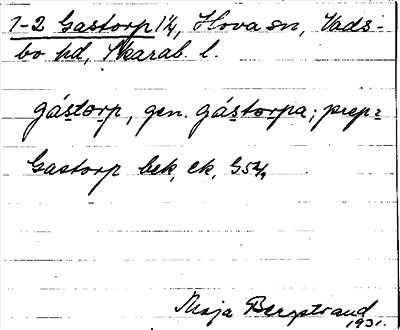 1-2 Gastorp 1/4, Hova sn, Vads-
bo hd, Skarab. l.
gástorp, gen. gástorpa; prep=
Gastorp bek, ek, G54,
Maja Bergstrand
1931.